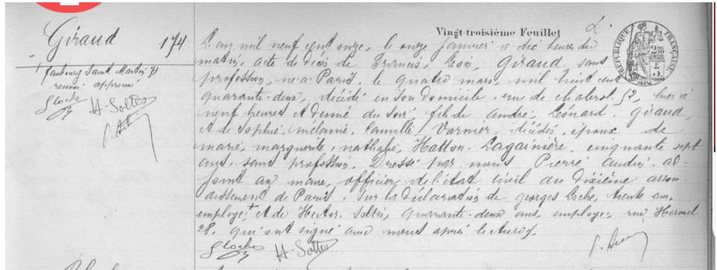 Vingt troisième Feuillet
Giraud 174
Faubourg Saint Martin 71
renvoi approuvé
L'an mil neuf cent onze, le onze janvier à dix heures du
matin, acte de décès de François, Léon, Giraud sans
profession, né à Paris, le quatre mars, mil huit cent
quarante-deux, décédé en son domicile, rue de Chabrol, hier à
neuf heures et demie du soir; fils de André, Léonard, Giraud
et de Sophie, Mélanie, Camille, Varnier, décédés; époux de
Marie, Marguerite, Nathalie, Hatton-Lagainière, cinquante sept
ans, sans profession. Dressé par nous Pierre Audin, ad-
joint au maire, officier de l'état civil du dixième arron-
dissement de Paris; sur la déclaration de Georges Loche, trente ans,
employé, et de Hector, quarante-deux ans, employé, rue Hermel
28, qui ont signé avec nous après lecture.
G Loche H. Soltes